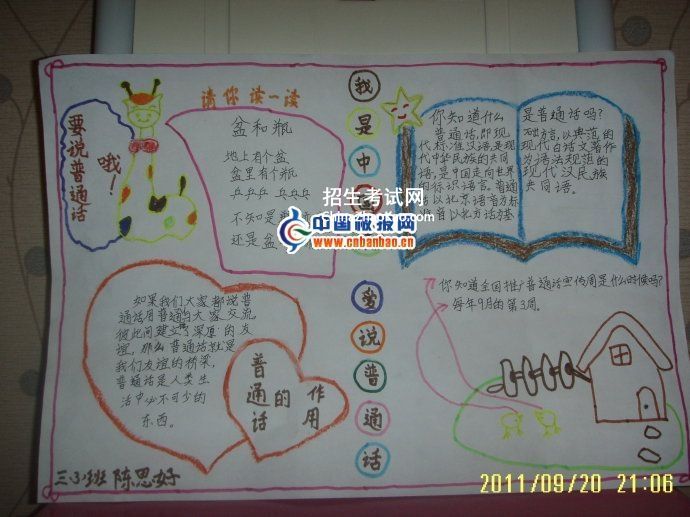 要说普通话
哦!
请你读一读
盆和瓶
地上有个盆
盆里有个瓶
乒乒乒 乓乓乓
不知是
还是盆
我是中
爱说普通话
你知道什么是普通话吗?
普通话,即现
代标准汉语,是现
代中华民族的共同
语,是中国走向世界
的标识语言。普通
话以北京语音为标
准音以北方话为基
础方言,以典范的
现代白话文著作
为语法规范的
现代汉民族
共同语。
你知道全国推广普通话宣传周是什么时候吗?
每年9月的第3周。
如果我们大家都说普
通话用普通与大家交流,
彼此间建立了深厚的友
谊,那么普通话就是
我们友谊的桥梁,
普通话是人类生
活中必不可少的
东西。
普通话的作用
三(3)班 陈思好
招生考试网
中国板报网
www.cnbanbao.cn
2011/09/20 21:06